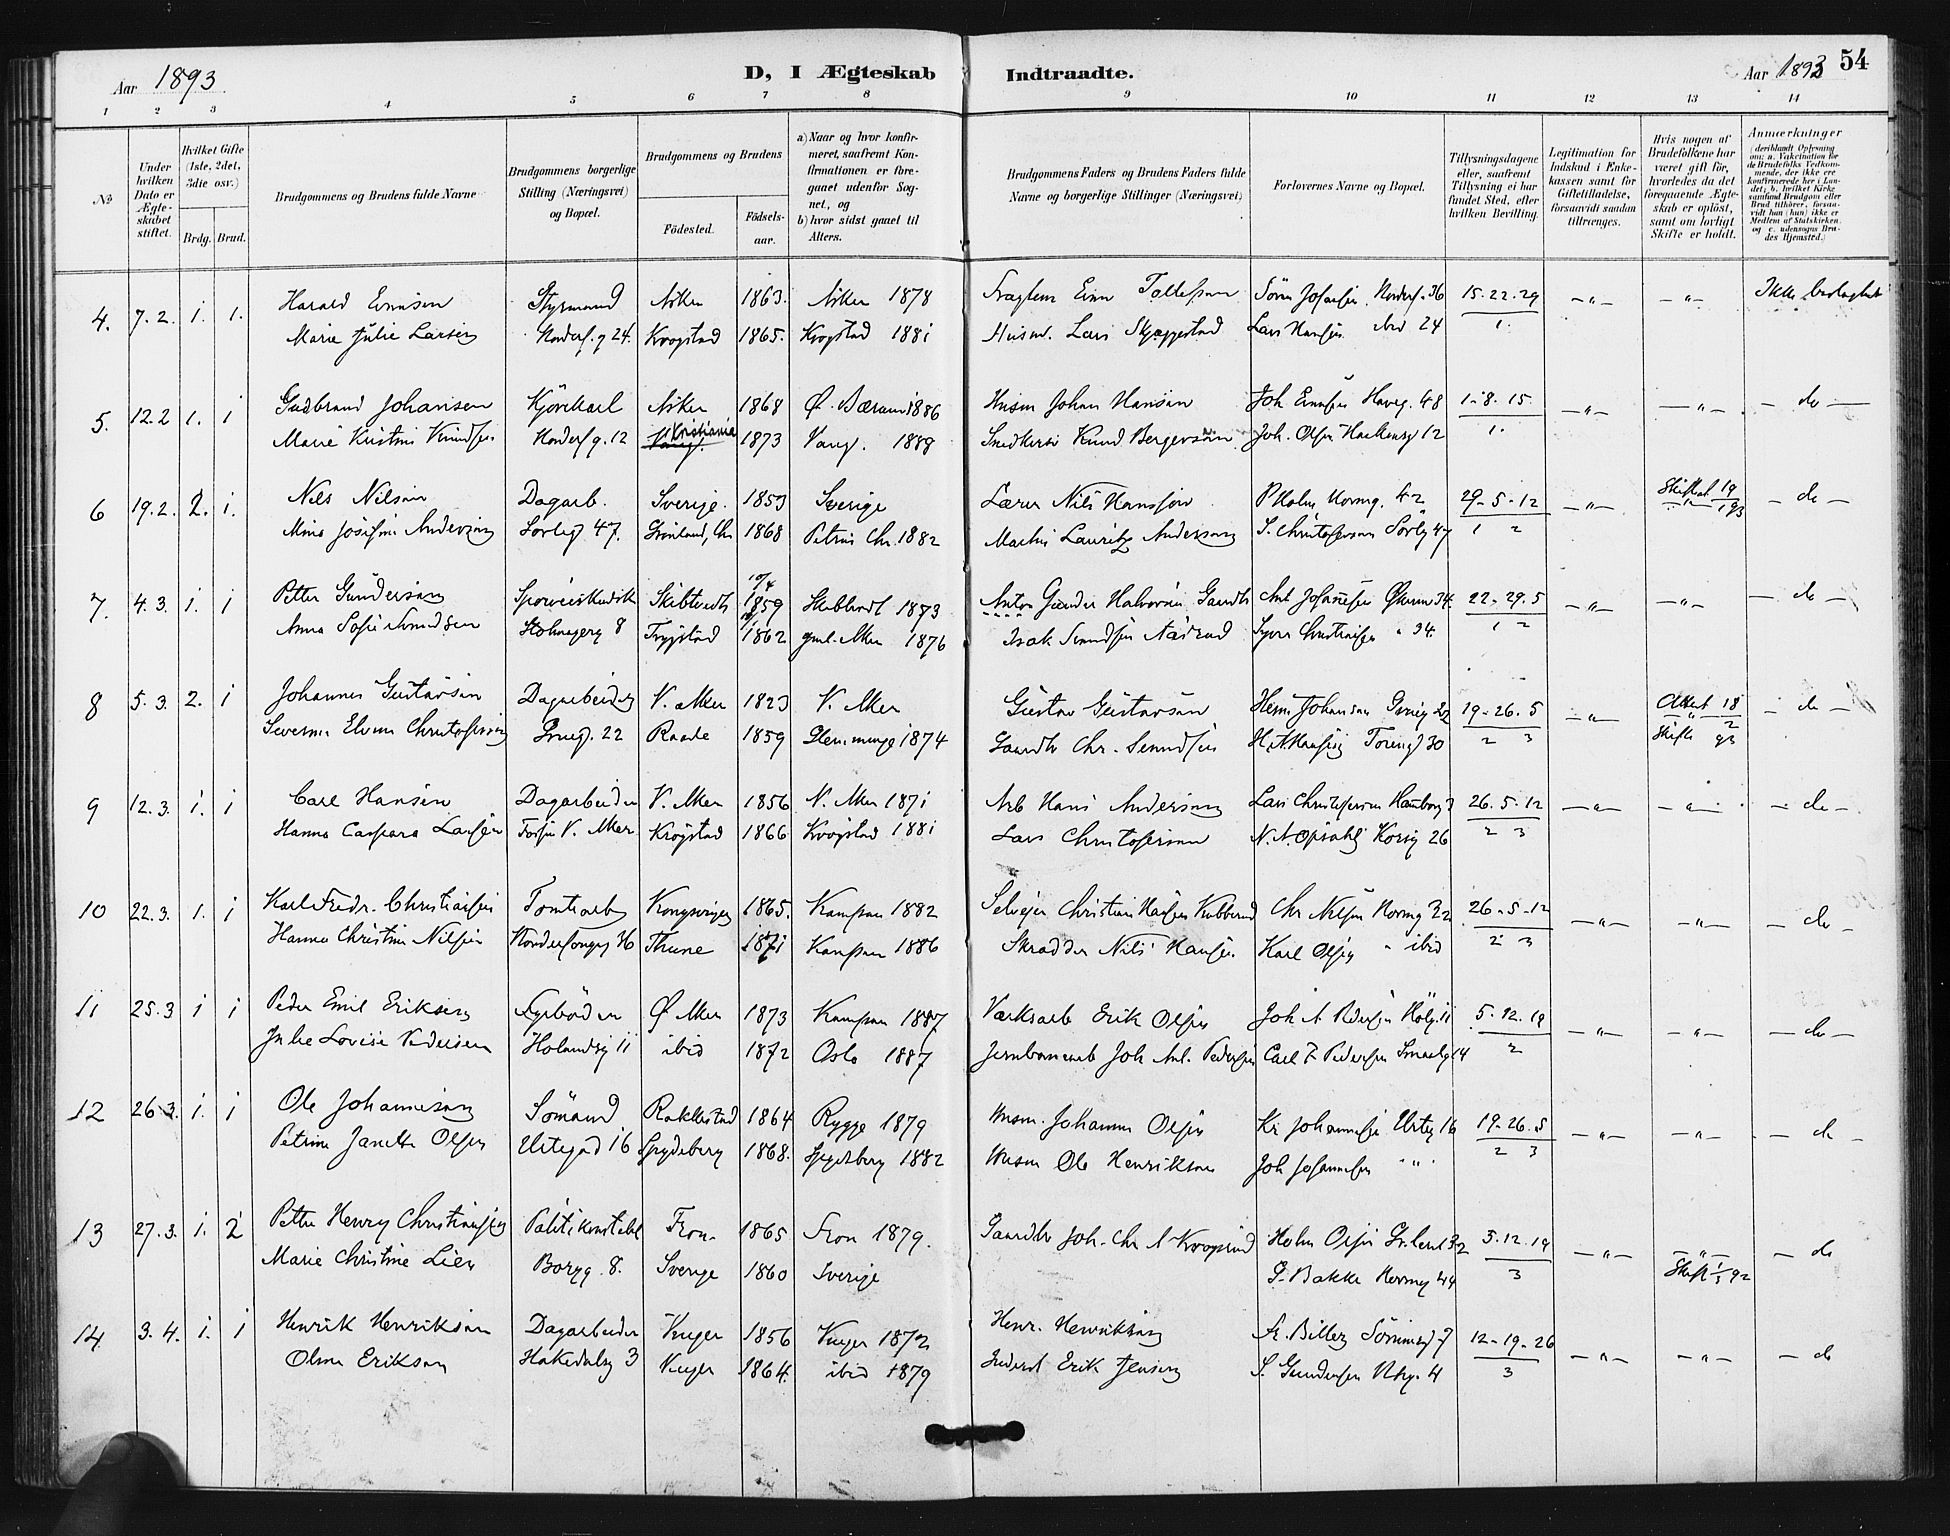 Aar 1893
D, I Ægteskab Indtraadte.
Aar 1893 54
1 2 3 4 5 6 7 8 9 10 11 12 13 14
No
Under hvilken Dato er Ægteskabet stiftet.
Hvilket Gifte (1ste, 2det, 3die osv.)
Brdg. Brud.
Brudgommens og Brudens fulde Navne
Brudgommens borgerlige Stilling (Næringsvei) og Bopæl.
Brudgommens og Brudens
Födested. Födsels-aar.
a) Naar og hvor konfirmeret, saafremt Konfirmationen er foregaaet udenfor Sognet, og
b) hvor sidst gaaet til Alters.
Brudgommens Faders og Brudens Faders fulde Navne og borgerlige Stillinger (Næringsvei)
Forlovernes Navne og Bopæl.
Tillysningsdagene eller, saafremt Tillysning ei har fundet Sted, efter hvilken Bevilling.
Legitimation for Indskud i Enkekassen samt for Giftetilladelse, forsaavidt saadan tiltrænges.
Hvis nogen af Brudefolkene har været gift för, hvorledes da det foregaaende Ægteskab er oplöst, samt om lovligt Skifte er holdt.
Anmærkninger
4. 7.2. 1. 1. Harald Evensen Styrmand Aker 1863. Aker 1878 Even Tollefsen Sören Johansen Nordrf. 36 15.22.29 — " — — " — Ikke beslægtet
Marie Julie Larsen Nordrf. g 24. Krogstad 1865. Krogstad 1881 Husm. Lars Skjeggestad Lars Hansen ibid 24 1.
5. 12.2 1. 1 Gudbrand Johansen Kjörekarl Aker 1868 Ø. Bærum 1886 Husm Johan Hansen Joh. Evensen Haveg. 48 1-8.15 — " — — " — — do —
Marie Kristine Knudsen Nordrf. g. 12 Kristiania 1873 Vang. 1888 Snedkersv Knud Bergersen Joh. Olsen 12 1.
6 19.2. 2. 1. Nils Nilsen Dagarb. Sverige. 1853 Sverige Lærer Nils Hansson P Holm Normg. 42 29-5-12 — " — Skiftet 19/1 93 — do —
Mina Josefine Andersen Sörlig 47. Grönland, Chr 1868 Petrus Chr. 1882 Martin Lauritz Andersen S. Christophersen Sörlg 47 1 2
7. 4.3. 1. 1 Petter Gundersen Skibtvedt 10/4 1859 Skibtvedt 1873 Anton Gunder Halvorsen Gaardbr Ant Johannesen 34. 22-29.5 — " — — " — — do —
Anna Sofie 8 Trygstad 1862 gml. Aker 1876 Isak 34. 1 2
8 5.3. 2. 1 Johannes Gustavsen Dagarbeider V. Aker 1823 V. Aker Gustav Gustavsen Johansen 22 19-26.5 — " — 18/2 Skifte 93 — do —
Christophersen 22 Raade 1859 Glemminge 1874 Gaardbr Chr. Hansen 30 2 3
9 12.3. 1. 1 Carl Hansen Dagarbeider V. Aker 1856 V. Aker 1871 Arb Hans Andersen Lars Christophersen 26.5.12 — " — — " — — do —
Hanna Caspara Larsen V. Aker Krogstad 1866 Krogstad 1881 Lars Christophersen N. A. Opsahl 26 2 3
10 22.3. 1. 1 Karl Fredr. Christiansen Tomtearb Kongsvinger 1865. Kampen 1882 Selveier Christian Hansen Kubberud Chr Nilsen Normg 32 26-5-12 — " — — " — — do —
Hanna Christine Nilsen 36 Thune 1871 Kampen 1886 Skrædder Nils Hansen Karl Olsen " ibid 2 3
11 25.3 1 1 Peder Emil Eriksen Fyrböder Ø. Aker 1873 Kampen 1887 Værksarb Erik Olsen Joh A Pedersen 11 5.12.19 — " — — " — — do —
Julie Lovise Pedersen Holendrg 11 ibid 1872 Oslo 1887 Jernbanearb Joh Ant. Pedersen Carl F Pedersen Smaalg 14 2
12 26.3. 1. 1 Ole Johannesen Sömand Rakkestad 1864 Rygge 1879 Husm. Johannes Olsen Kr Johannesen Urteg 16 19-26.5 — " — — " — — do —
Petrine Janette Olsen Urtegad 16 Spydeberg 1868. Spydeberg 1882 Husm Ole Henriksen Joh Johannesen " " 2 3
13 27.3. 1. 2 Petter Henry Christiansen Politikonstabel Fron 1865 Fron 1879. Gaardbr Joh. Chr. A Holm Olsen 32 5.12.19 — " — — " — — do
Marie Christine Lien Borgg. 8. Sverige 1860 Sverige Bakke 44 3 Skift 1/3 92
14 3.4. 1. 1 Henrik Henriksen Dagarbeider Vinger 1856 Vinger 1872 Henr. Henriksen 7 12-19-26 — " — — " — — do
Oline Eriksen Hakedalsg 3 Vinger 1864. ibid 1879 Inderst Erik Jensen S. Gundersen 4 3